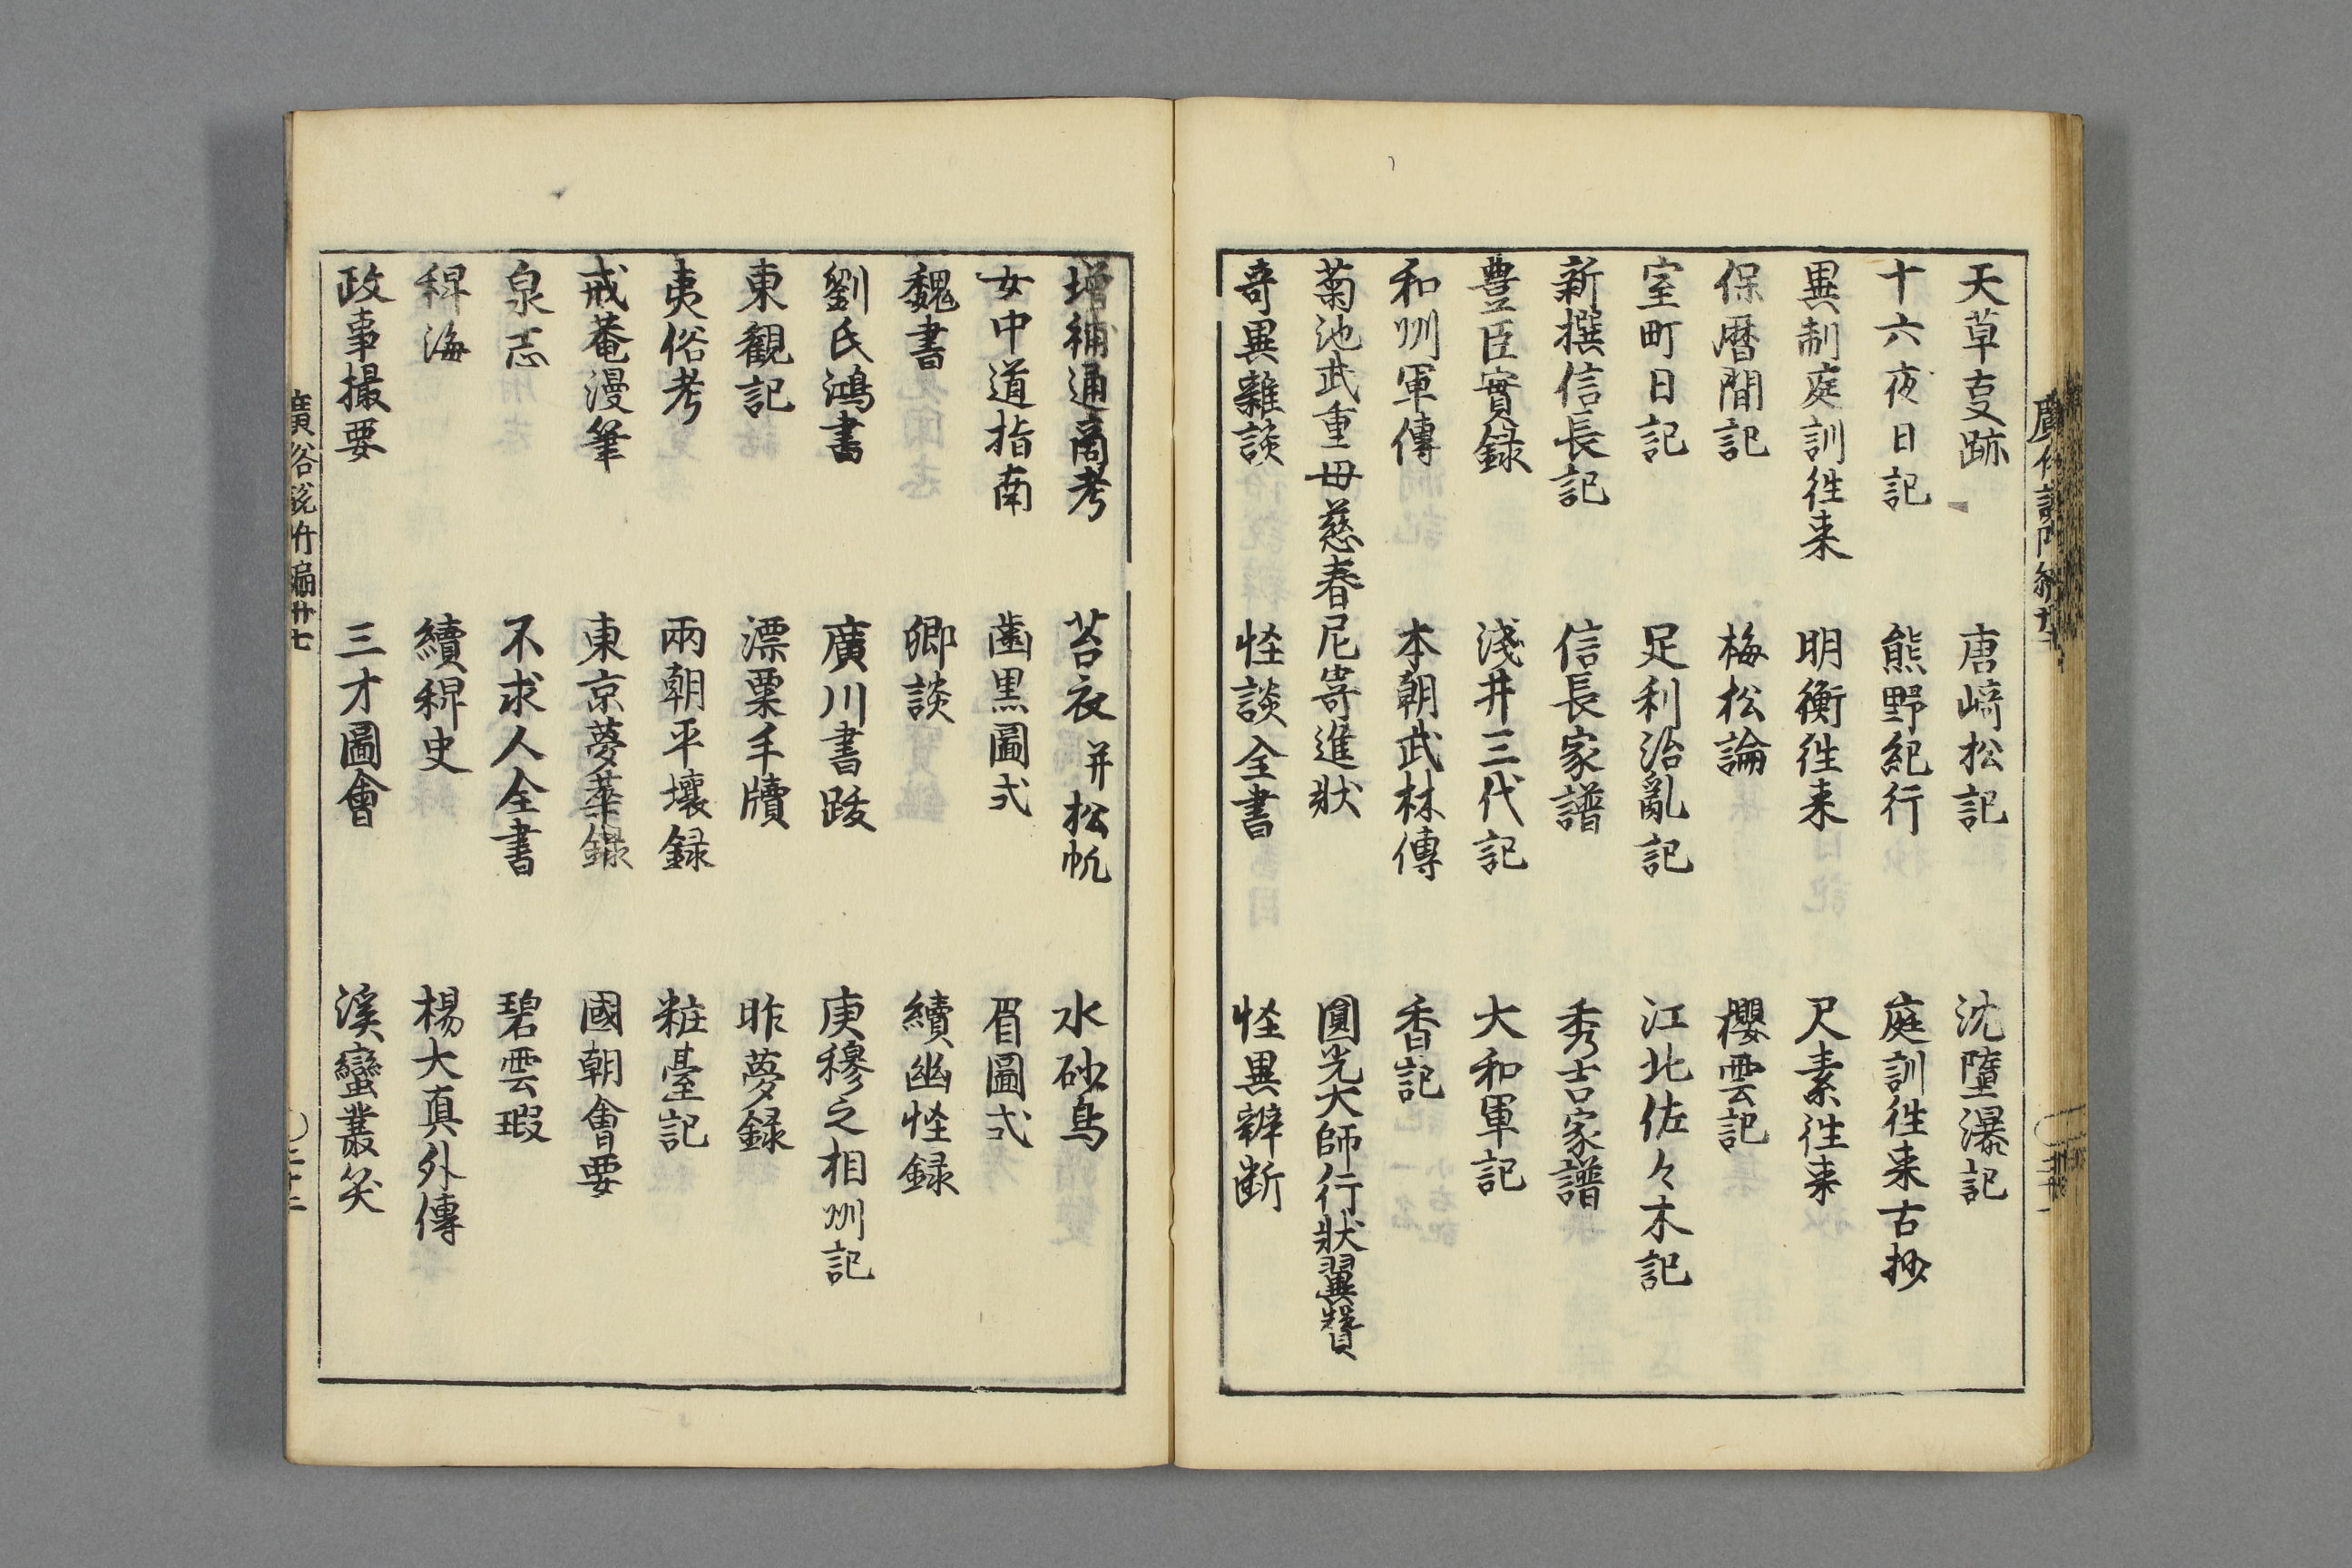 天草事跡　唐﨑松記　沈墮瀑記
十六夜日記　熊野紀行　庭訓徃来古抄
異制庭訓徃来　明衡徃来　尺素徃来
保暦間記　梅松論　櫻雲記
室町日記　足利治亂記　江北佐々木記
新撰信長記　信長家譜　秀吉家譜
豊臣實録　淺井三代記　大和軍記
和州軍傳　本朝武林傳　香記
菊池武重母慈春尼寄進狀　圓光大師行狀翼賛
竒異雜談　怪談全書　怪異辨断
増補通商考　苔衣并松帆　水砂鳥
女中道指南　歯黒圖式　眉圖式
魏書　卿談　續幽怪録
劉氏鴻書　廣川書跋　庚穆之相州記
東觀記　漂粟手牘　昨夢録
夷俗考　兩朝平壤録　粧臺記
戒菴漫筆　東京夢華録　國朝會要
泉志　不求人全書　碧雲瑕
稗海　續稗史　楊大真外傳
政事撮要　三才圖會　溪蠻叢笑
廣俗説 編廿七
二十二